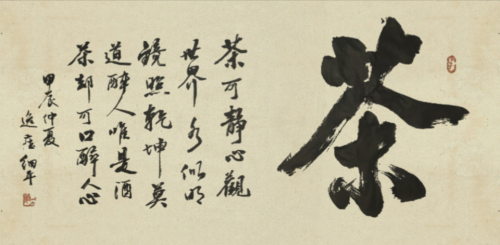 茶
茶可静心觀
世界水似明
鏡照乾坤莫
道醉人唯是酒
茶却可口醉人心
甲辰仲夏